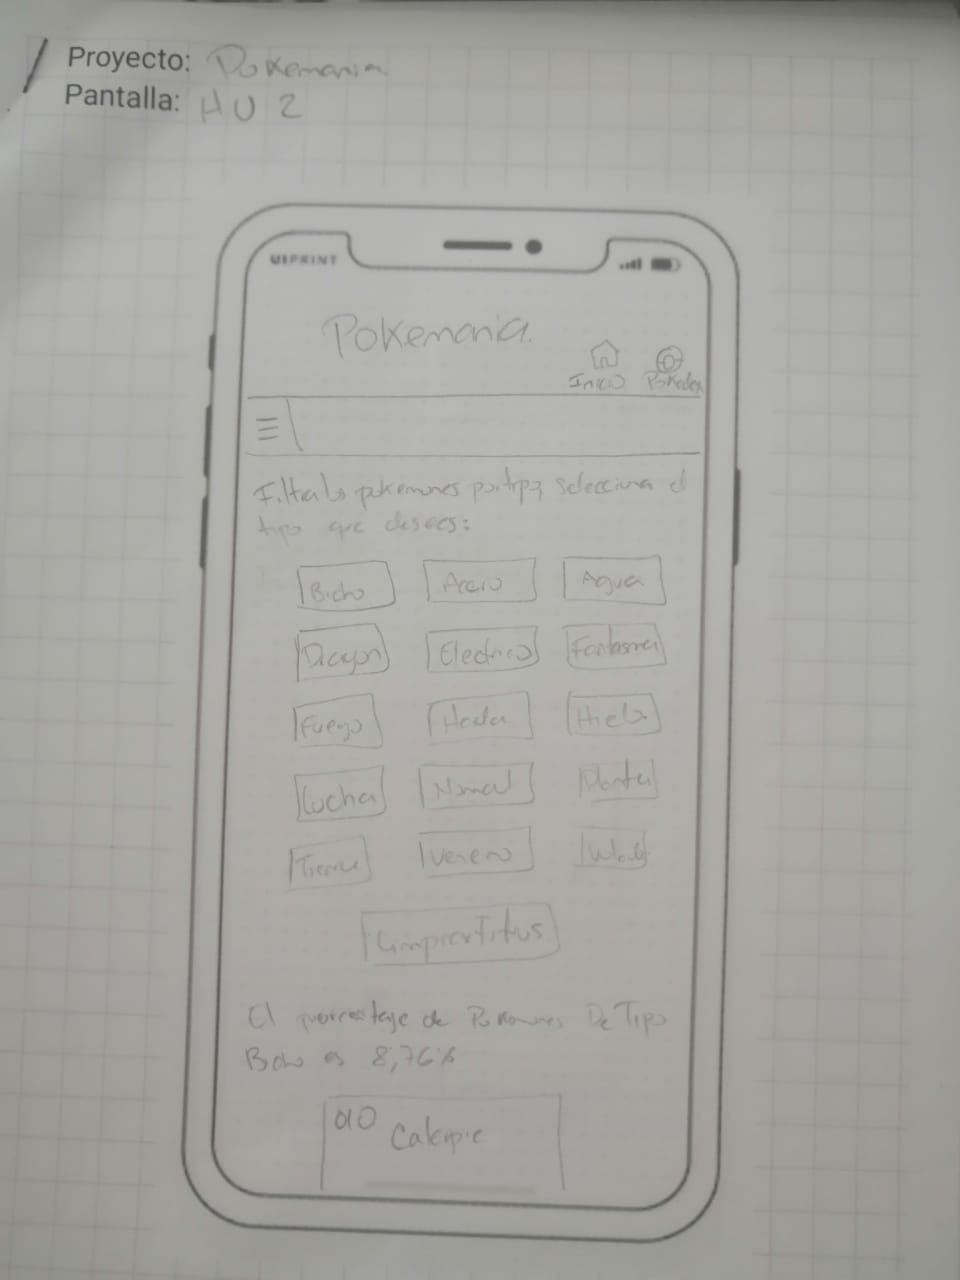 Proyecto: Pokemania
Pantalla: HU 2
UIPRINT
Pokemania.
Inicio Pokedex
Filtra los pokemones por tipo, selecciona el
tipo que desees:
Bicho Acero Agua
Dragon Electrico Fantasma
Fuego Hada Hielo
Lucha Normal Planta
Tierra Veneno
Limpiar Filtros
El porcentaje de Pokemones De Tipo
Bicho es 8,76%
010 Caterpie